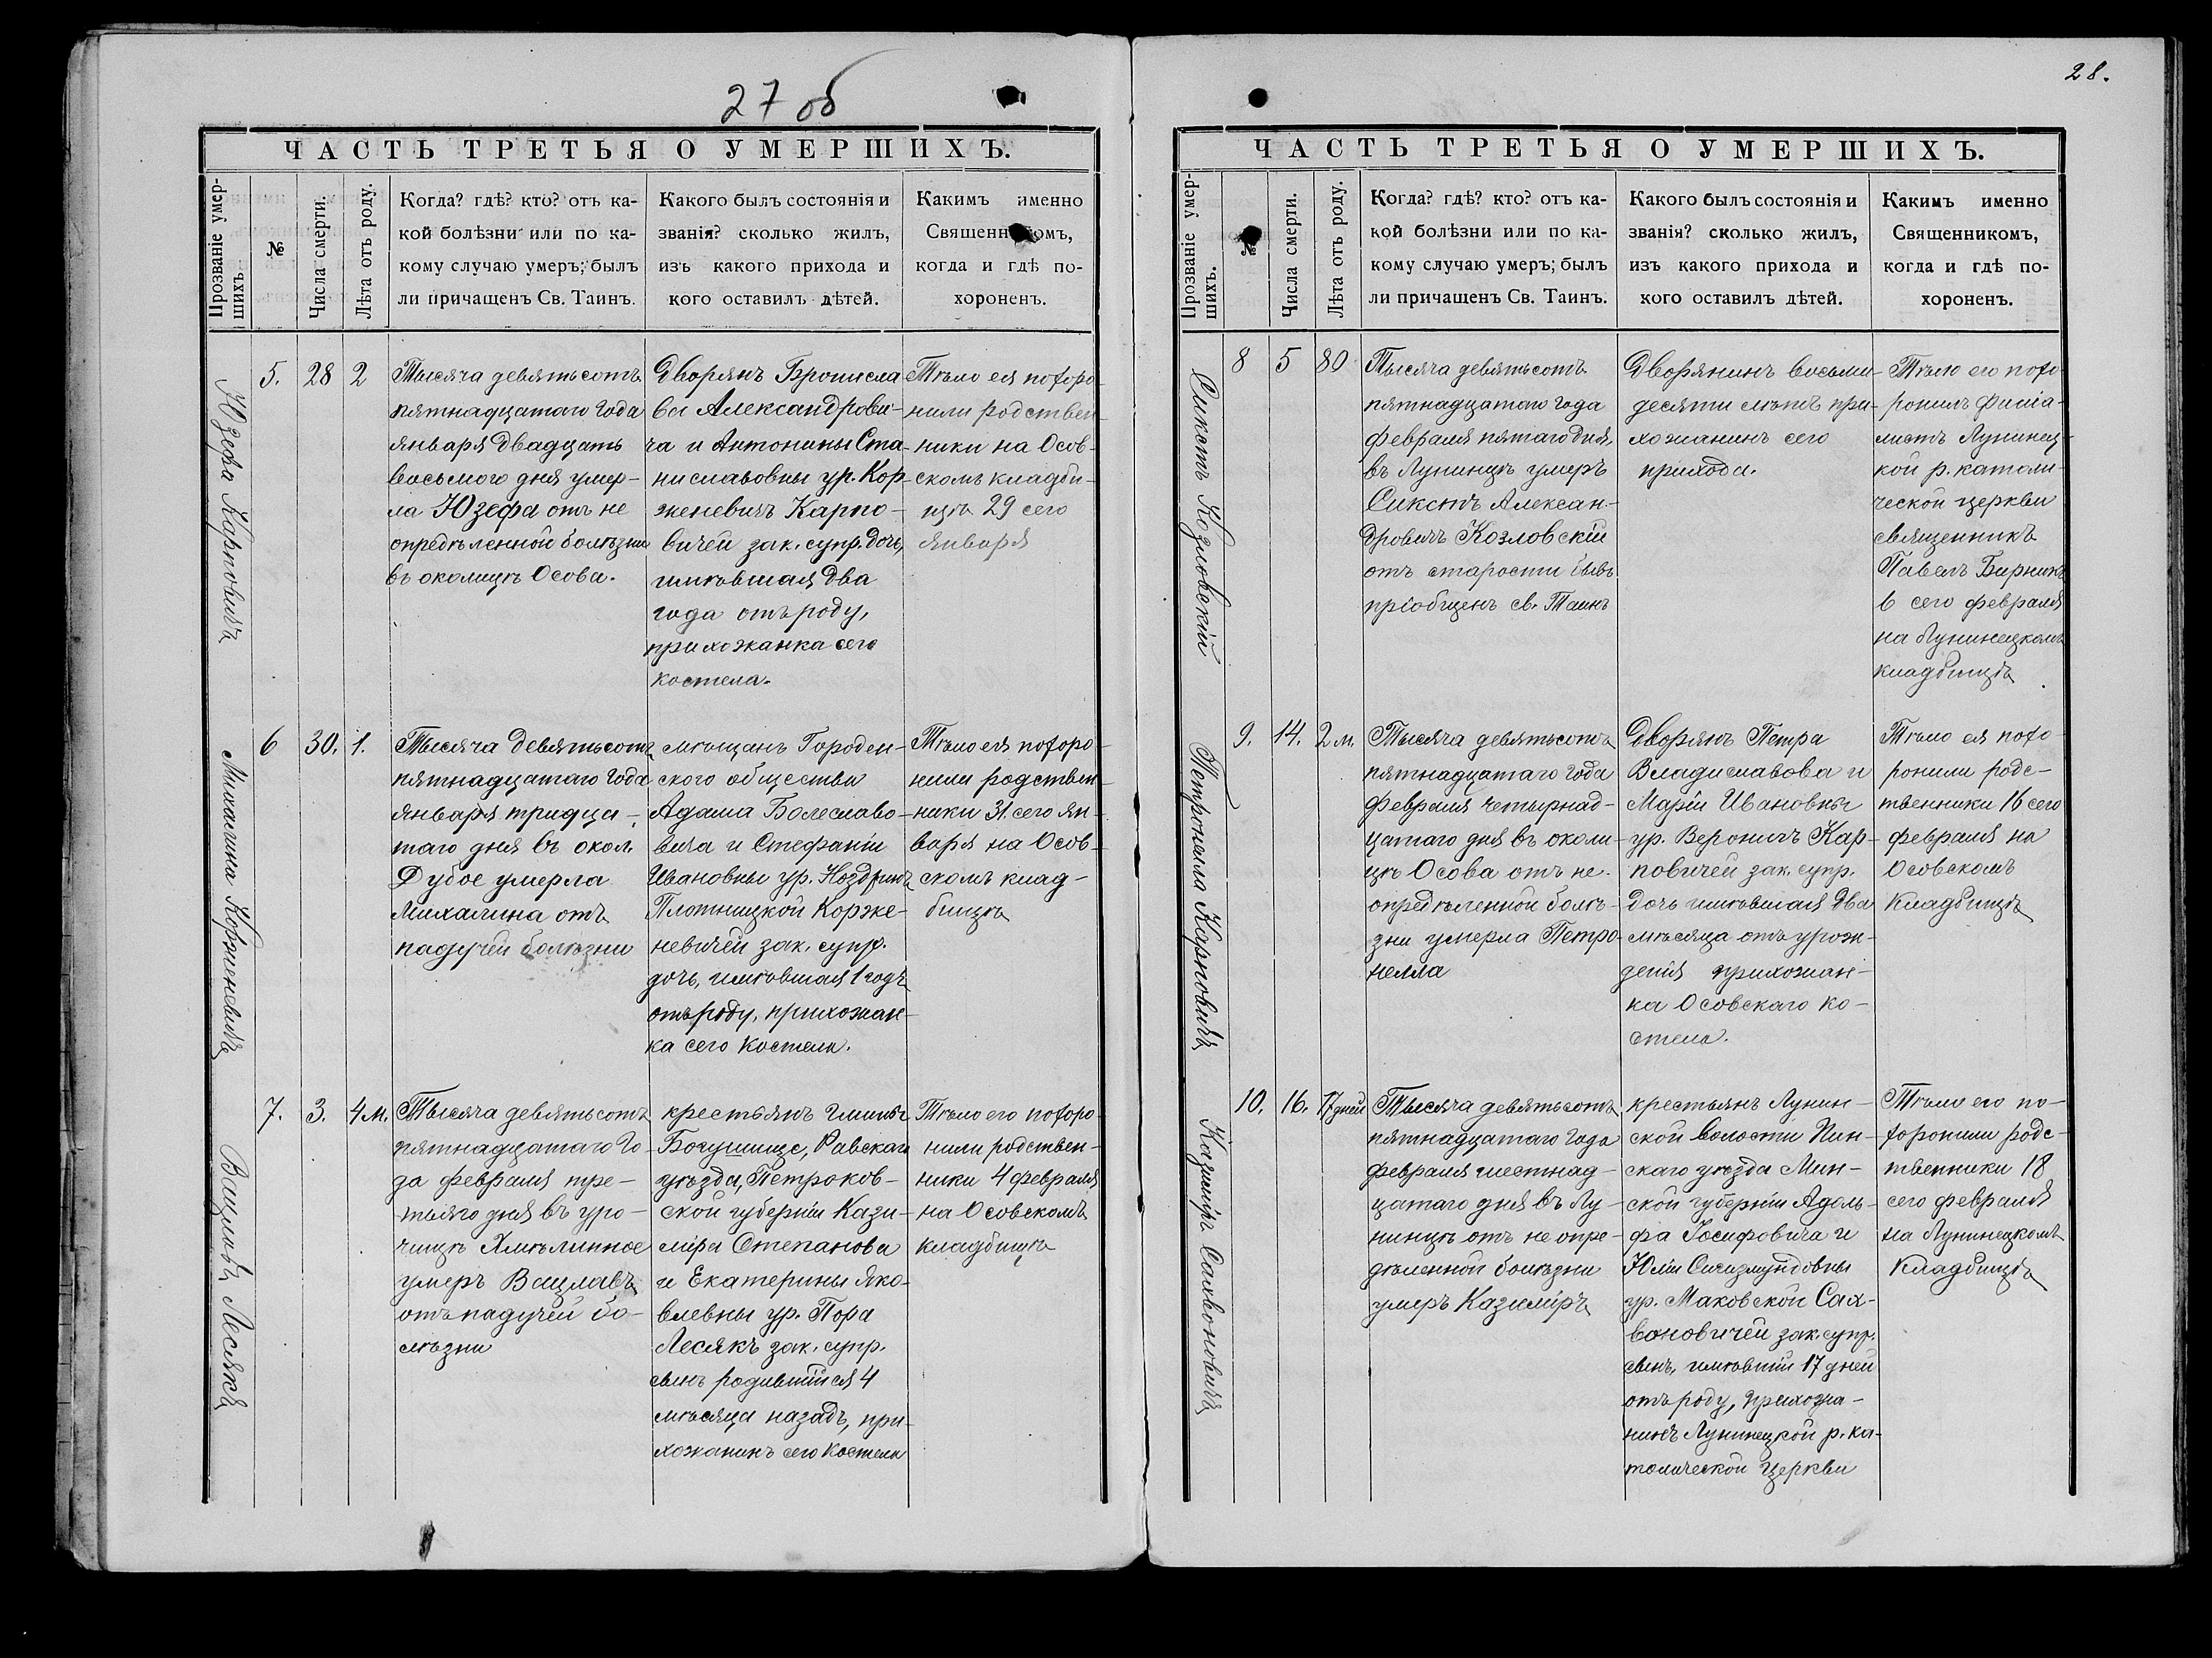 27 об
ЧАСТЬ ТРЕТЬЯ О УМЕРШИХЪ.
Прозваніе умер-
шихъ
№
Числа смерти.
Лѣта отъ роду.
Когда? гдѣ? кто? отъ ка-
кой болѣзни или по ка-
кому случаю умеръ; былъ
ли причащенъ Св. Таинъ.
Какого былъ состоянія и
званія? сколько жилъ,
изъ какого прихода и
кого оставилъ дѣтей.
Какимъ именно
Священникомъ,
когда и гдѣ по-
хороненъ.
Юзефа Карповичъ
5.
28
2
Тысяча девятьсотъ
пятнадцатаго года
января двадцать
восьмого дня умер-
ла Юзефа отъ не
опредѣленной болѣзни
въ околицѣ Осова.
Дворянъ Бронисла
ва Александрови-
ча и Антонины Ста-
ниславовны ур. Кор-
женевичъ Карпо-
вичей зак. супр. дочь,
имѣвшая два
года отъ роду,
прихожанка сего
костела.
Тѣло ея похоро-
нили родствен
ники на Осов-
скомъ кладби-
щѣ 29 сего
января
Михалина Корженевичъ
6
30.
1.
Тысяча девятьсотъ
пятнадцатаго года
января тридца-
таго дня въ окол.
Дубое умерла
Михалина отъ
падучей болѣзни
мѣщанъ Городен-
ского общества
Адама Болеславо-
вича и Стефаніи
Ивановны ур. Ноздринъ
Плотницкой Корже-
невичей зак. супр.
дочь, имѣвшая 1 годъ
отъ роду, прихожан-
ка сего костела.
Тѣло ея похоро-
нили родствен-
ники 31. сего ян-
варя на Осов-
скомъ клад-
бищѣ
Вацлавъ Лесякъ
7.
3.
4 м.
Тысяча девятьсотъ
пятнадцатаго го-
да февраля тре-
тьяго дня въ уро-
чищѣ Хмѣлинное
умеръ Вацлавъ
отъ падучей бо-
лѣзни
крестьянъ гмины
Богушице, Равскаго
уѣзда, Петроков-
ской губерніи Кази-
міра Степанова
и Екатерины Яко-
влевны ур. Пора
Лесякъ зак. супр.
сынъ родившійся 4
мѣсяца назадъ, при-
хожанинъ сего костела
Тѣло его похоро-
нили родствен-
ники 4 февраля
на Осовскомъ
кладбищѣ
28.
ЧАСТЬ ТРЕТЬЯ О УМЕРШИХЪ.
Прозваніе умер-
шихъ.
№
Числа смерти.
Лѣта отъ роду.
Когда? гдѣ? кто? отъ ка-
кой болѣзни или по ка-
кому случаю умеръ; былъ
ли причащенъ Св. Таинъ.
Какого былъ состоянія и
званія? сколько жилъ,
изъ какого прихода и
кого оставилъ дѣтей.
Какимъ именно
Священникомъ,
когда и гдѣ по-
хороненъ.
Сикстъ Козловскій
8
5
80
Тысяча девятьсотъ
пятнадцатаго года
февраля пятаго дня,
въ Лунинцѣ умеръ
Сикстъ Алексан-
дровичъ Козловскій
отъ старости бывъ
пріобщенъ св. Таинъ
Дворянинъ восьми-
десяти лѣтъ при-
хожанинъ сего
прихода.
Тѣло его похо-
ронилъ филіа-
листъ Лунинец-
кой р. католи-
ческой церкви
священникъ
Павелъ Бирникъ
6 сего февраля
на Лунинецкомъ
кладбищѣ
Петронелла Карповичъ
9.
14.
2 м.
Тысяча девятьсотъ
пятнадцатаго года
февраля четырнад-
цатаго дня въ околи-
цѣ Осова отъ не-
опредѣленной болѣ-
зни умерла Петро-
нелла
Дворянъ Петра
Владиславова и
Маріи Ивановны
ур. Вероничъ Кар-
повичей зак. супр.
дочь имѣвшая два
мѣсяца отъ рож-
денія прихожан-
ка Осовскаго ко-
стела.
Тѣло ея похо-
ронили родс-
твенники 16 сего
февраля на
Осовскомъ
Кладбищѣ
Казиміръ Сахвоновичъ
10.
16.
17 дней
Тысяча девятьсотъ
пятнадцатаго года
февраля шестнад-
цатаго дня въ Лу-
нинцѣ отъ не опре-
дѣленной болѣзни
умеръ Казиміръ
крестьянъ Лунин-
ской волости Пин-
скаго уѣзда Мин-
ской губерніи Адоль-
фа Іосифовича и
Юліи Сигизмундовны
ур. Маковской Сах-
воновичей зак. супр.
сынъ, имѣвшій 17 дней
отъ роду, прихожа-
нинъ Лунинецкой р. ка-
толической церкви
Тѣло его по-
хоронили родс-
твенники 18
сего февраля
на Лунинецкомъ
Кладбищѣ